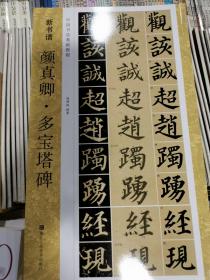 中国书法基础教程
新书谱
颜真卿·多宝塔碑
觀 觀 觀
該 該 該
誠 誠 誠
超 超 超
趙 趙 趙
躅 躅 躅
踴 踴 踴
經 經 經
現 現 現